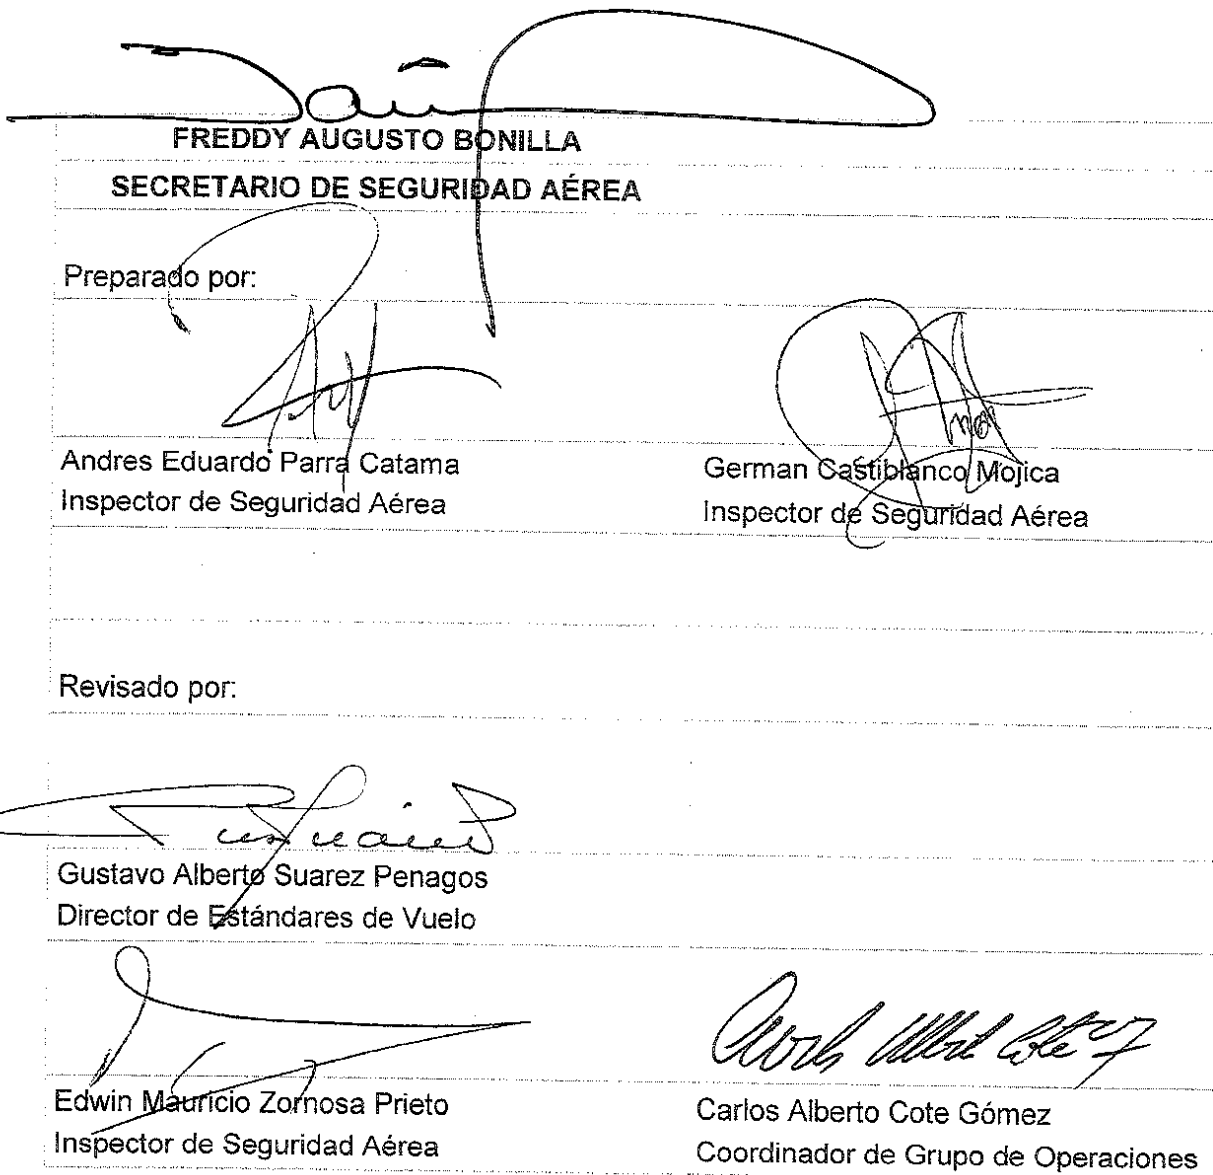 FREDDY AUGUSTO BONILLA
SECRETARIO DE SEGURIDAD AÉREA
Preparado por:
Andres Eduardo Parra Catama
Inspector de Seguridad Aérea
German Castiblanco Mojica
Inspector de Seguridad Aérea
Revisado por:
Gustavo Alberto Suarez Penagos
Director de Estándares de Vuelo
Carlos Alberto Cote
Edwin Mauricio Zornosa Prieto
Inspector de Seguridad Aérea
Carlos Alberto Cote Gómez
Coordinador de Grupo de Operaciones